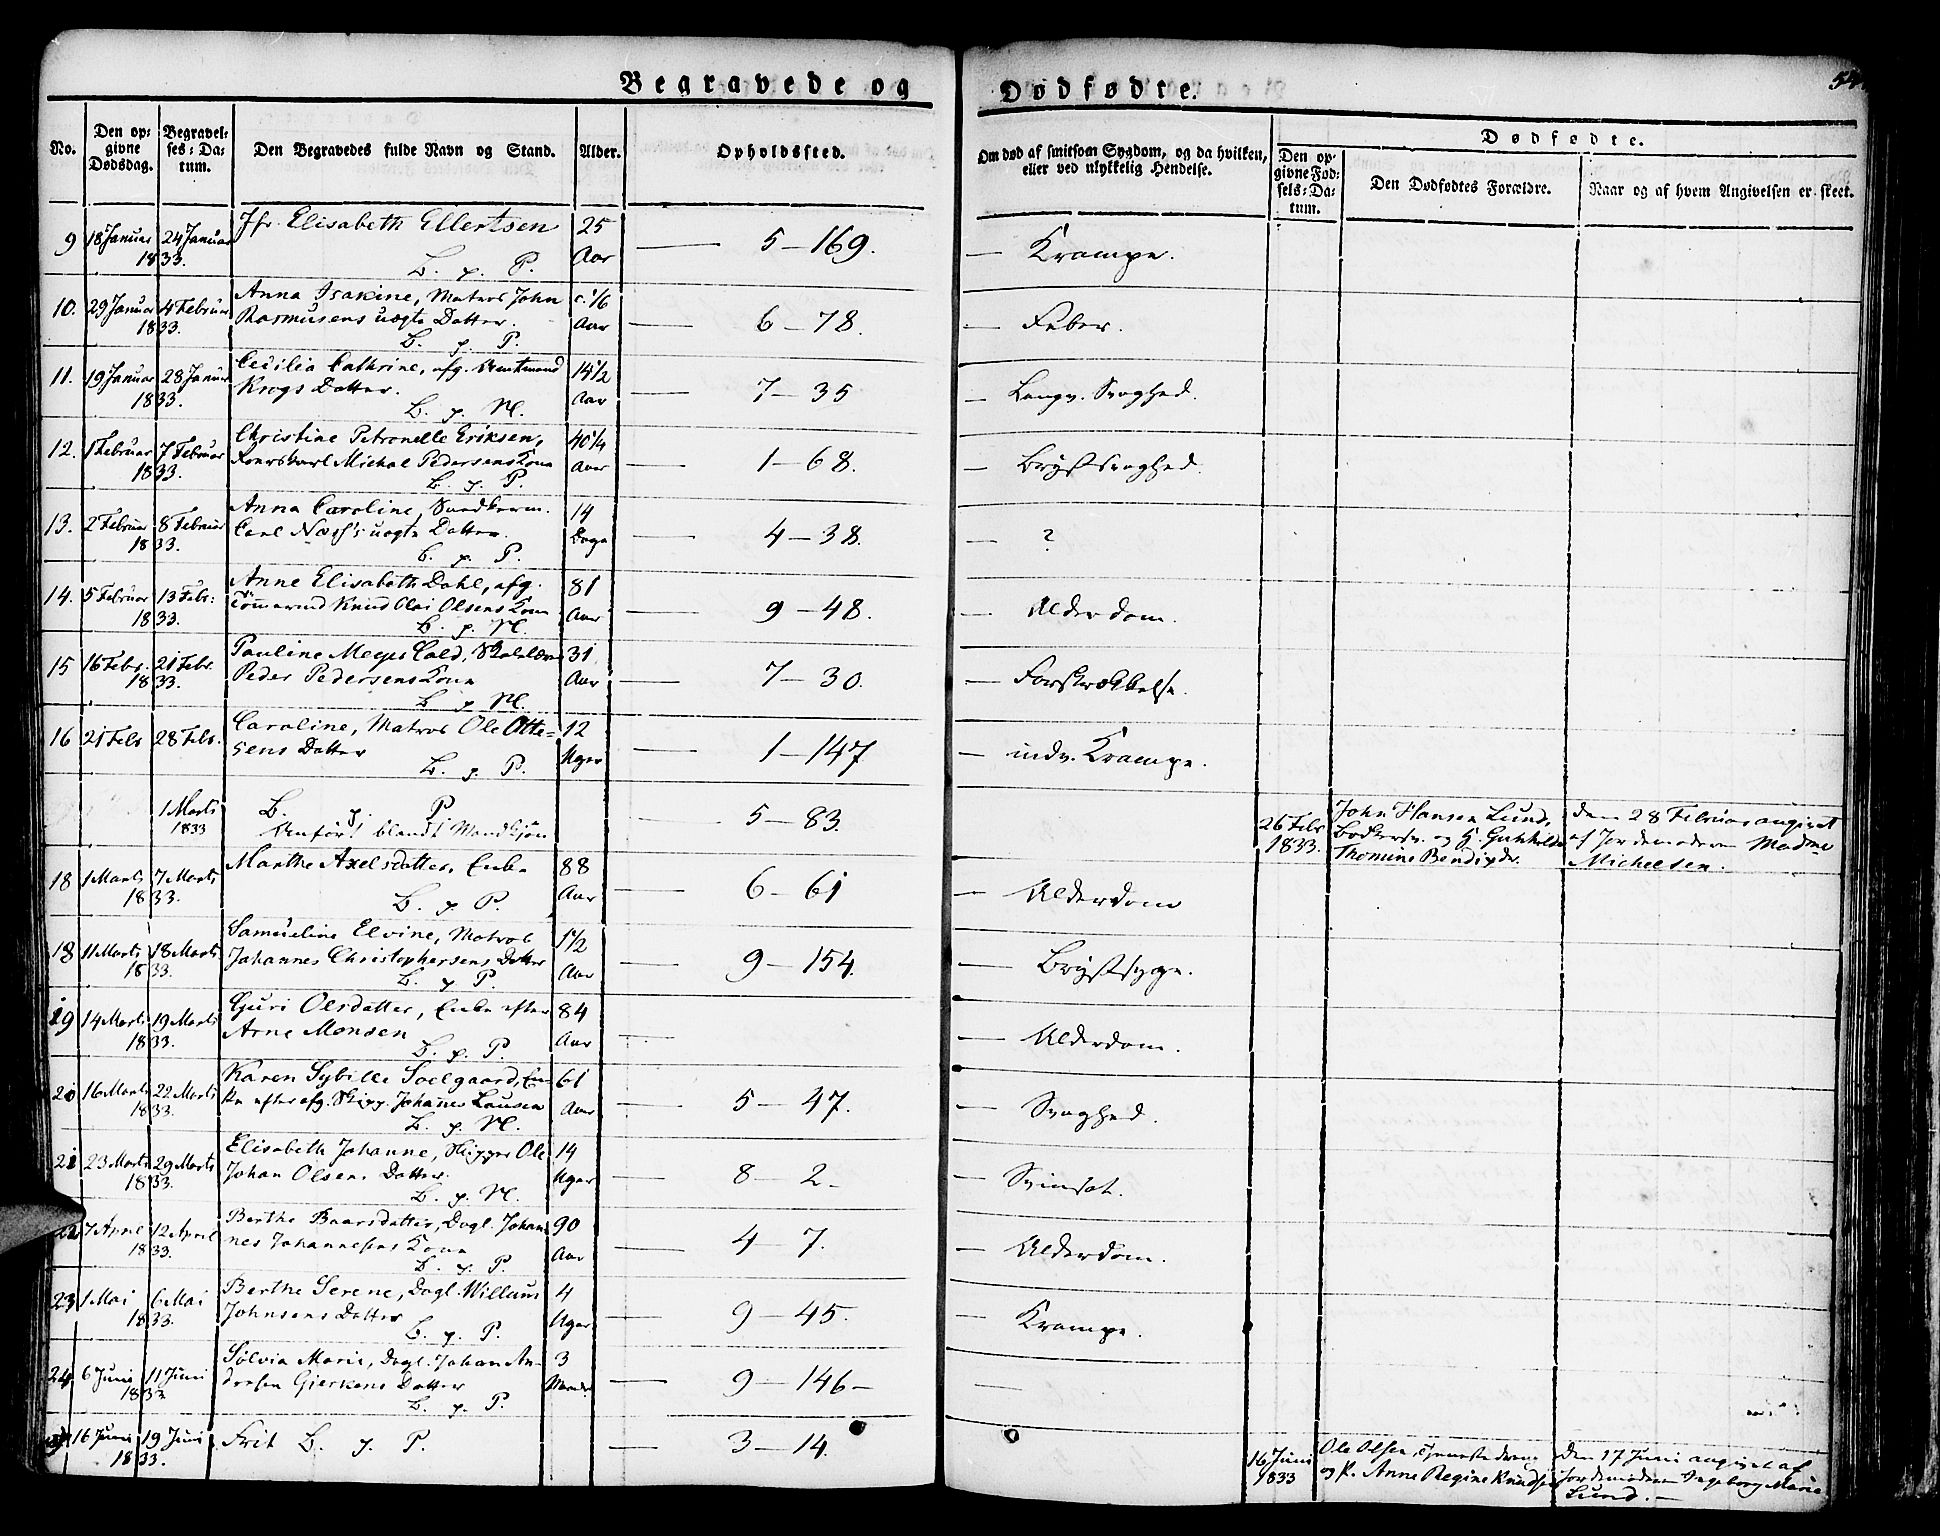 Begravede og Dødfødte.
54
No.
Den op-
givne
Dødsdag.
Begravel-
ses-Da-
tum.
Den Begravedes fulde Navn og Stand.
Alder.
Opholdssted.
Om død af smitsom Sygdom, og da hvilken,
eller ved ulykkelig Hendelse.
Dødfødte.
Den op-
givne Fød-
sels-Da-
tum.
Den Dødfødtes Forældre.
Naar og af hvem Angivelsen er skeet.
9 18 Januar 24 Januar Jfr. Elisabeth Ellertsen 25
1833. B. p. P. Aar 5-169. Krampe.
10. 29 Januar 4 Februar Anna Isakine, Matros John c. 1/6
1833. Rasmusens uægte Datter. Aar 6-78. Feber.
B. p. P.
11. 19 Januar 28 Januar Cecilia Cathrine, afg. Amtmand 14 1/2
1833. Krogs Datter. Aar 7-35 Langv. Svaghed.
B. p. N.
12. 1 Februar 7 Februar Christine Petronelle Eriksen, 40 1/4
1833. Michal Pedersens Kone Aar 1-68. Brystsvaghed.
B. p. P.
13. 2 Februar 8 Februar Anna Caroline, 14
1833. Carl Næss's uægte Datter. Dage 4-38. ?
B. p. P.
14. 5 Februar 13 Febr: Anne Elisabeth Dahl, afg. 81
1833. Tømmermd Knud Olai Olsens Kone Aar 9-48. Alderdom.
B. p. N.
15 16 Febr. 21 Febr. Pauline Meyer Cold, Skolelærer 31
1833. Peder Pedersens Kone Aar 7-30. Forskrækkelse.
B. p. N.
16 21 Febr 28 Febr. Caroline, Matros Ole Otte- 12
sens Datter Uger 1-147 indv. Krampe.
B. p. P.
1 Marts B. p. P 5-83. 26 Febr John Hansen Lund, den 28 Februar angivet
1833 Anført blandt Mandkjøn 1833. Bødkersv. og H. Gunhilde af Jordemoderen Madme
Thomine Bendixdr. Micheelsen.
18 1 Marts 7 Marts Marthe Axelsdatter, Enke 88
1833. B. p. P. Aar 6-61 Alderdom
18 11 Marts 18 Marts Samueline Elvine, Matros 1 1/2
1833. Johannes Christophersens Datter Aar 9-154. Brystsyge.
B. p. P.
19 14 Marts 19 Marts Guri Olsdatter, Enke efter 84
1833. Arne Monsen Aar Alderdom.
B. p. P.
20 16 Marts 22 Marts Karen Sybille Soelgaard, En- 61
1833. ke efter afg. Skipp. Johannes Lausen Aar 5-47. Svaghed.
B. p. N.
21 23 Marts 29 Marts Elisabeth Johanne, Skipper Ole 14
1833. Johan Olsens Datter. Uger 8-2.
B. p. N.
22 7 April 12 April Berthe Baarsdatter, Dagl. Johan- 90
1833. nes Johannesens Kone Aar 4-7. Alderdom.
B. p. P.
23 1 Mai 6 Mai Berthe Serene, Dagl. Willaus 4
1833. Johnsens Datter Uger 9-45. Krampe.
B. p. P.
24 6 Juni 11 Juni Sølvia Marie, Dagl. Johan An- 3
1833. dresen Gjerkens Datter 9-146-
B. p. P.
16 Juni 19 Juni Frit B. p. P. 3-14. 16 Juni Ole Olsen, Tjenestedreng den 17 Juni angivet af
1833. 1833 og P. Anne Regine Knudsen Jordemoderen Ingeborg Marie
Lund.